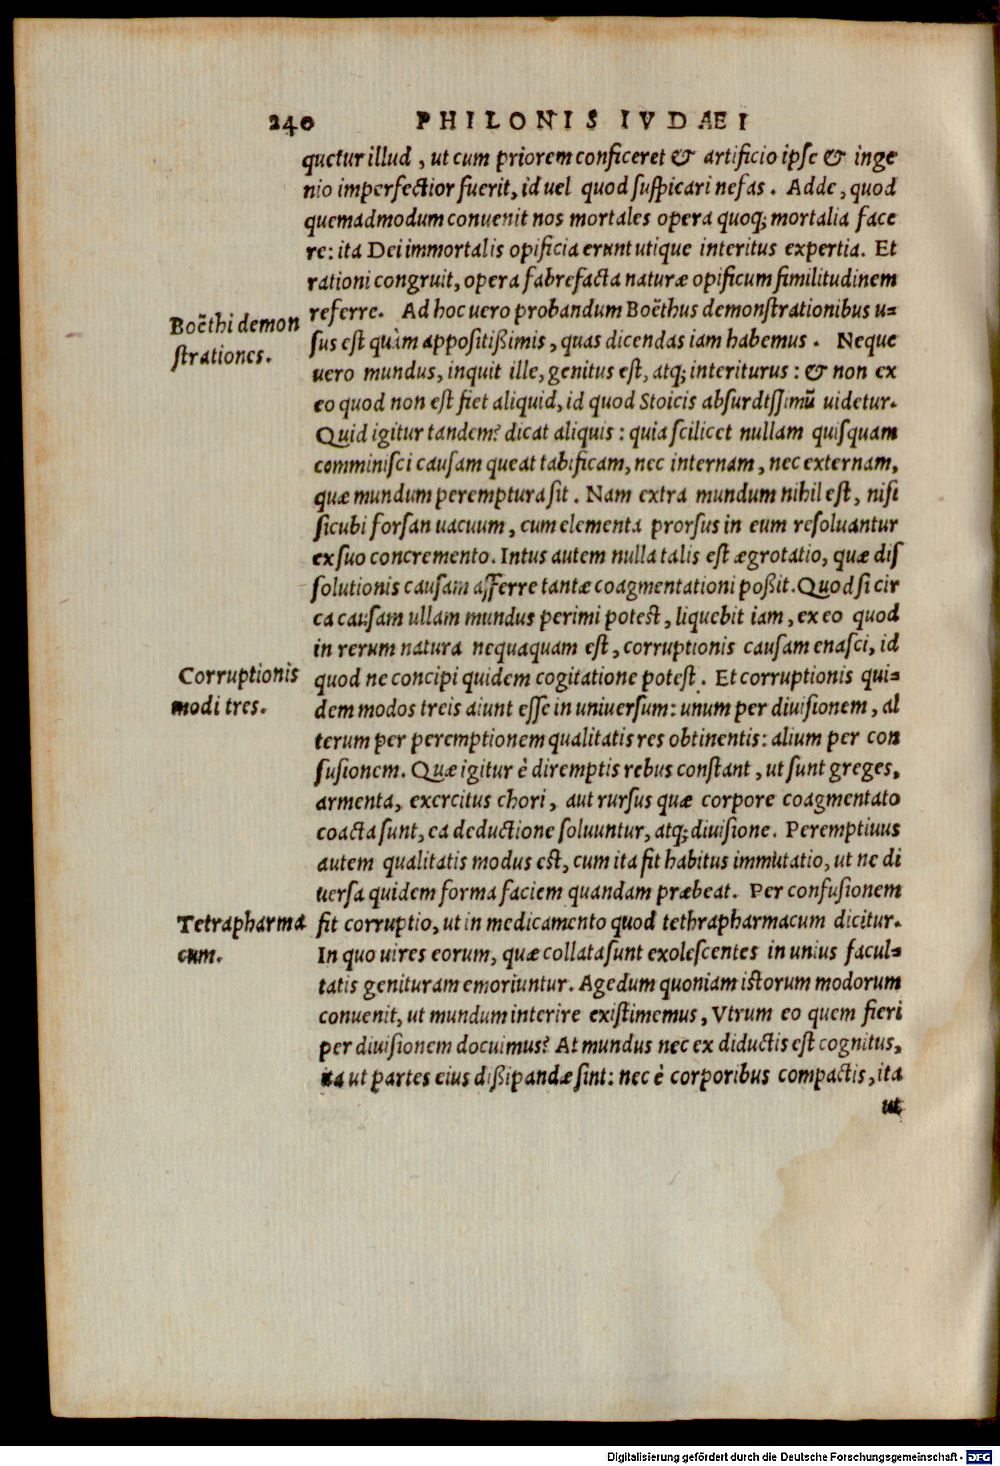 240 PHILONIS IVDÆI
quetur illud, ut cum priorem conficeret & artificio ipse & inge
nio imperfectior fuerit, id uel quod suspicari nefas. Adde, quod
quemadmodum conuenit nos mortales opera quoq; mortalia face
re: ita Dei immortalis opificia erunt utique interitus expertia. Et
rationi congruit, opera fabrefacta naturæ opificum similitudinem
referre. Ad hoc uero probandum Boëthus demonstrationibus u=
sus est quàm appositißimis, quas dicendas iam habemus. Neque
uero mundus, inquit ille, genitus est, atq; interiturus: & non ex
eo quod non est fiet aliquid, id quod Stoicis absurdissimū uidetur.
Quid igitur tandem? dicat aliquis: quia scilicet nullam quisquam
comminisci causam queat tabificam, nec internam, nec externam,
quæ mundum peremptura sit. Nam extra mundum nihil est, nisi
sicubi forsan uacuum, cum elementa prorsus in eum resoluantur
ex suo concremento. Intus autem nulla talis est ægrotatio, quæ dis
solutionis causam afferre tantæ coagmentationi poßit. Quod si cir
ca causam ullam mundus perimi potest, liquebit iam, ex eo quod
in rerum natura nequaquam est, corruptionis causam enasci, id
quod ne concipi quidem cogitatione potest. Et corruptionis qui=
dem modos treis aiunt esse in uniuersum: unum per diuisionem, al
terum per peremptionem qualitatis res obtinentis: alium per con
fusionem. Quæ igitur è diremptis rebus constant, ut sunt greges,
armenta, exercitus chori, aut rursus quæ corpore coagmentato
coacta sunt, ea deductione soluuntur, atq; diuisione. Peremptiuus
autem qualitatis modus est, cum ita fit habitus immùtatio, ut ne di
uersa quidem forma faciem quandam præbeat. Per confusionem
fit corruptio, ut in medicamento quod tethrapharmacum dicitur.
In quo uires eorum, quæ collata sunt exolescentes in unius facul=
tatis genituram emoriuntur. Agedum quoniam istorum modorum
conuenit, ut mundum interire existimemus, Vtrum eo quem fieri
per diuisionem docuimus? At mundus nec ex diductis est cognitus,
ita ut partes eius dißipandæ sint: nec è corporibus compactis, ita
ut
Boëthi demon
strationes.
Corruptionis
modi tres.
Tetrapharma
cum.
Digitalisierung gefördert durch die Deutsche Forschungsgemeinschaft - DFG